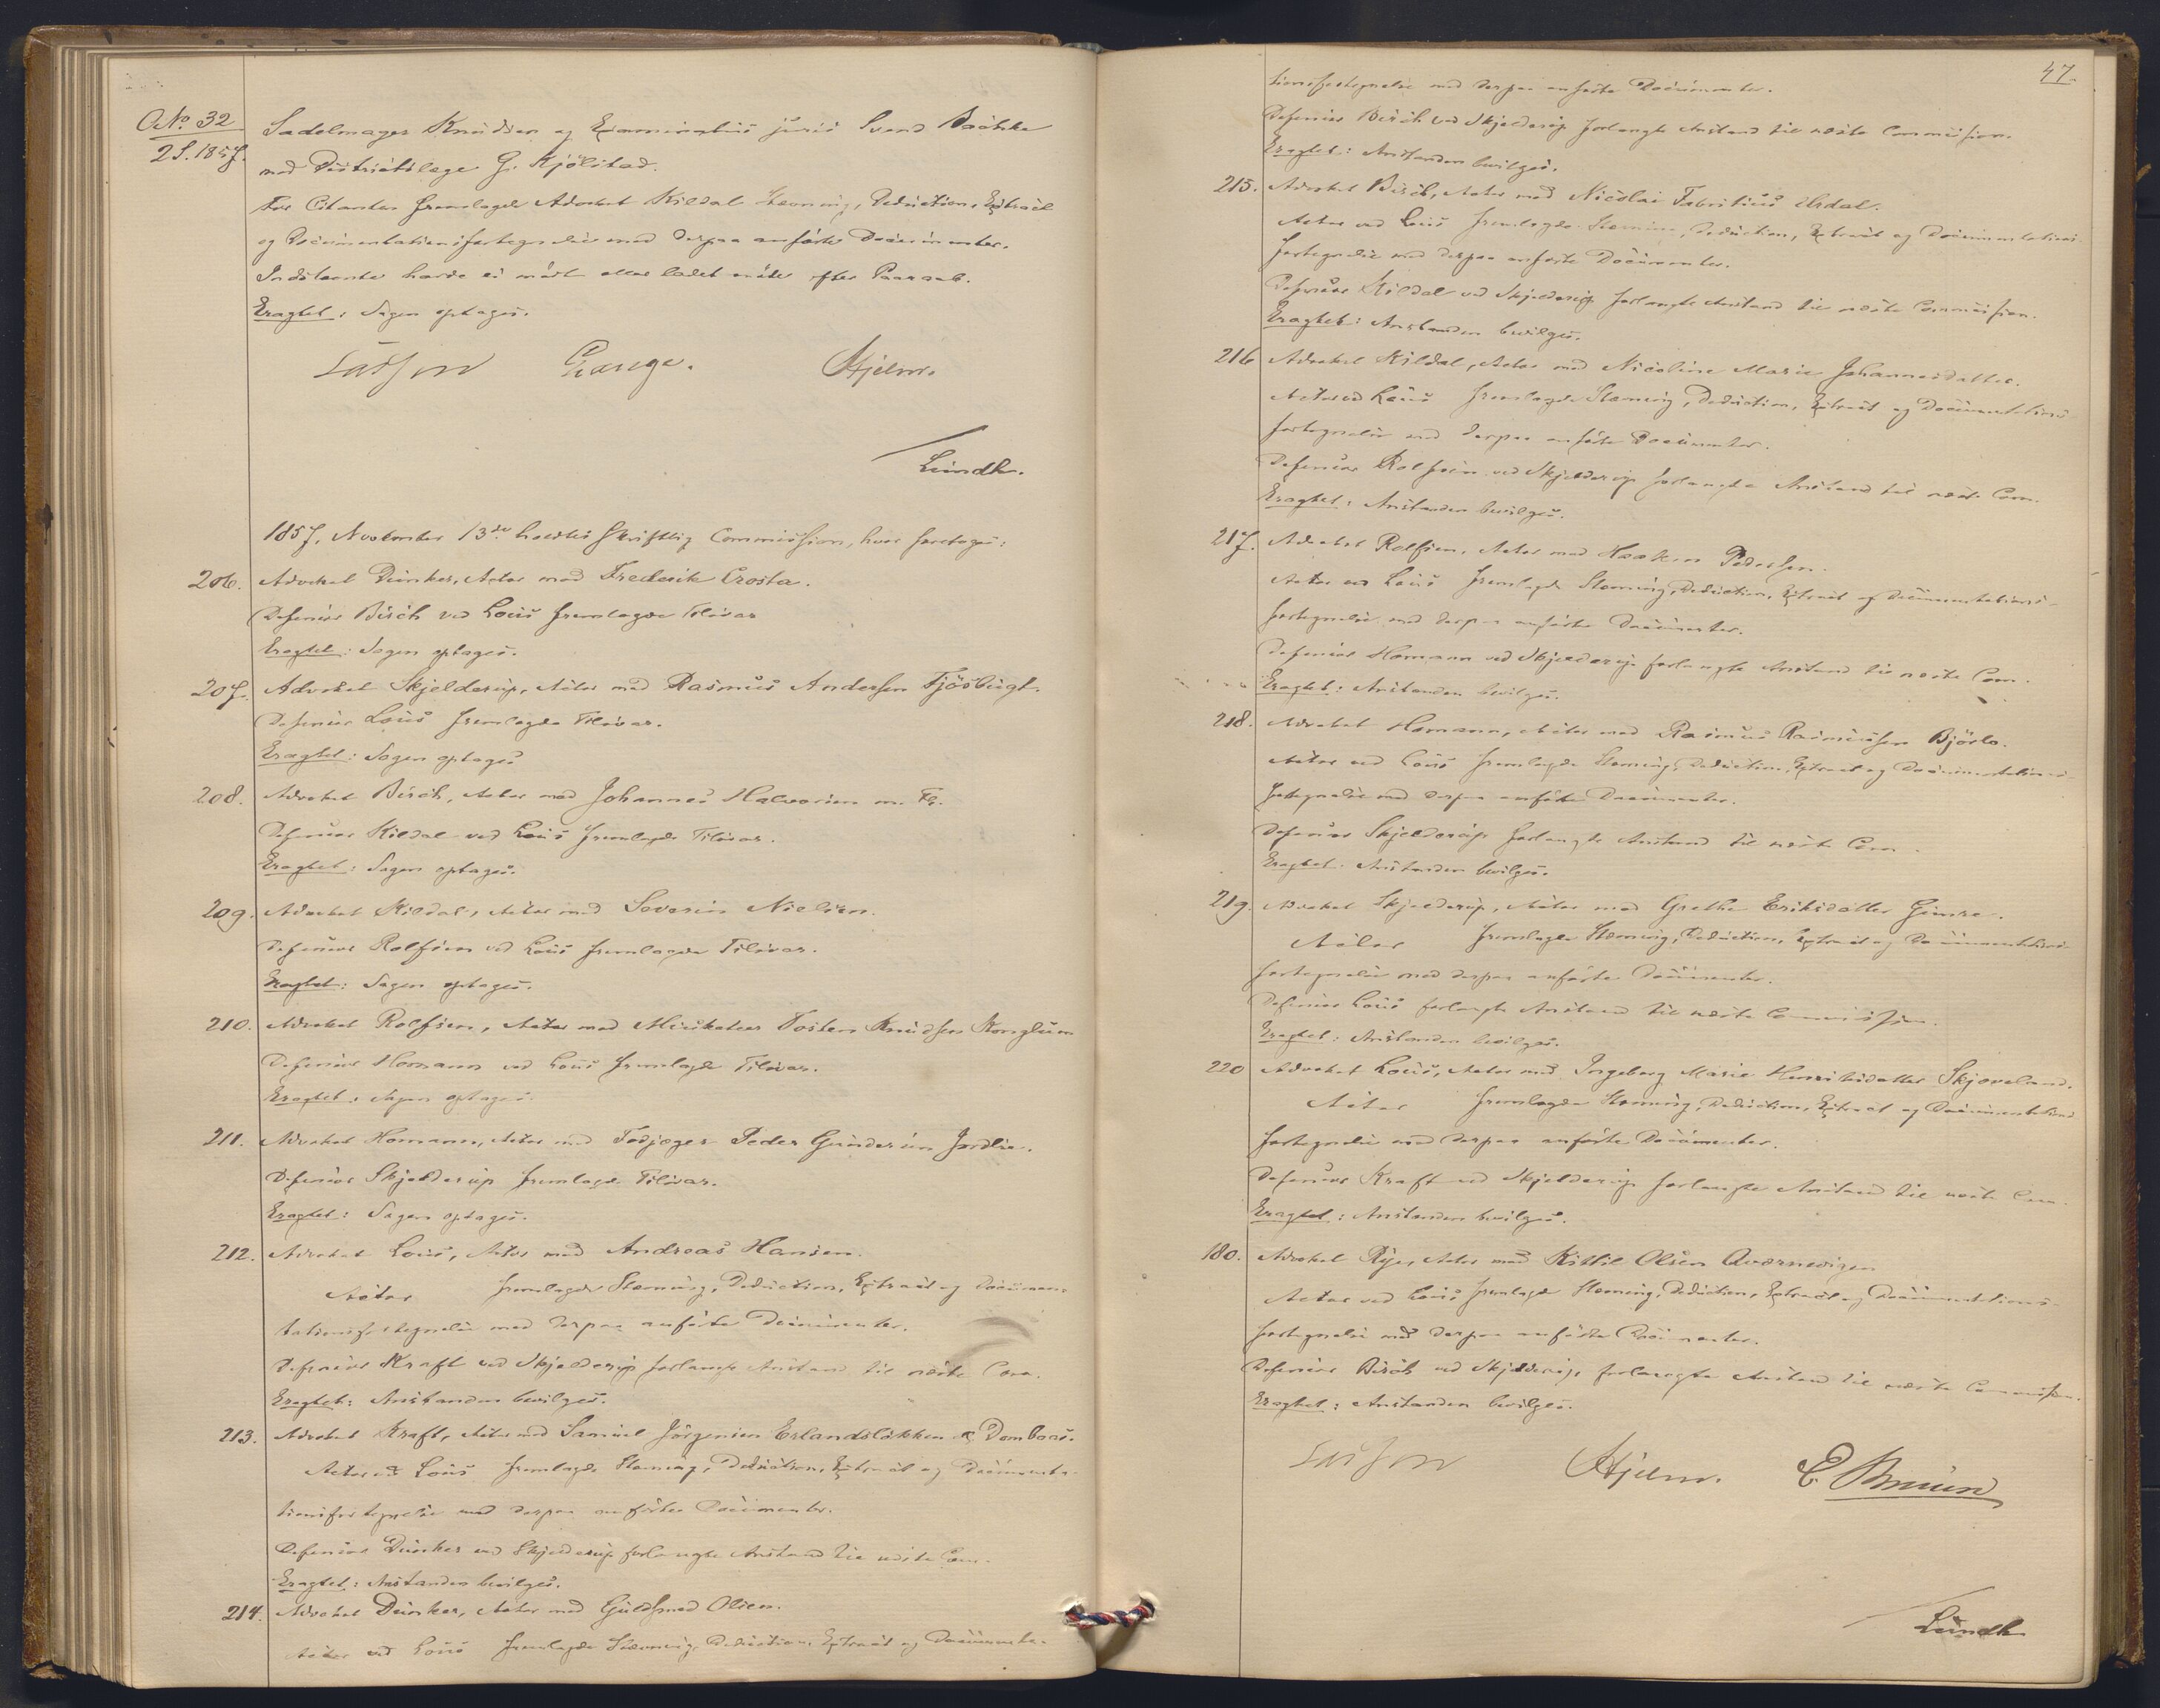 No. 32
2S. 1857.
Sadelmager Knudsen og Examinatus juris Svend Bachke
mod Districtslæge G. Kjölstad.
For Citanten fremlagde Advokat Kildal Stevning, Deduction, Extract
og Documentationsfortegnelse med derpaa anførte Documenter.
Indstevnte havde ei mødt eller ladet møde efter Paaraab.
Eragtet: Sagen optages.
Lasson Hjelm.
Lundh.
1857, November 13de holdtes Skriftlig Commission, hvor foretoges:
206. Advokat Dunker, Actor mod Frederik Crosta.
Defensor Birch ved Lous fremlagde Tilsvar
Eragtet: Sagen optages.
207. Advokat Skjelderup, Actor mod Rasmus Andersen Tjösbugt.
Defensor Lous fremlagde Tilsvar.
Eragtet: Sagen optages
208. Advokat Birch, Actor mod Johannes Halvorsen m. Fl.
Defensor Kildal ved Lous fremlagde Tilsvar.
Eragtet: Sagen optages.
209. Advokat Kildal, Actor mod Severin Nielsen.
Defensor Rolfsen ved Lous fremlagde Tilsvar.
Eragtet: Sagen optages.
210. Advokat Rolfsen, Actor mod Musketeer Tosten Knudsen Konglum
Defensor Homann ved Lous fremlagde Tilsvar.
Eragtet: Sagen optages.
211. Advokat Homann, Actor mod Fodjæger Peder Gundersen Jordlie.
Defensor Skjelderup fremlagde Tilsvar.
Eragtet: Sagen optages.
212. Advokat Lous, Actor mod Andreas Hansen.
Actor fremlagde Stævning, Deduction, Extract og Documen-
tationsfortegnelse med derpaa anførte Documenter.
Defensor Kraft ved Skjelderup forlangte Anstand til næste Com.
Eragtet: Anstanden bevilges.
213. Advokat Kraft, Actor mod Samuel Jörgensen Erlandsløkken a Dombaas.
Actor ved Lous fremlagde Stævning, Deduction, Extract og Documenta-
tionsfortegnelse med derpaa anførte Documenter.
Defensor Dunker ved Skjelderup forlangte Anstand til næste Com.
Eragtet: Anstanden bevilges.
214. Advokat Dunker, Actor mod Guldsmed Olsen.
Actor ved Lous fremlagde Stævning, Deduction, Extract og Documenta-
47.
tionsfortegnelse med derpaa anførte Documenter.
Defensor Birch ved Skjelderup forlangte Anstand til næste Commission.
Eragtet: Anstanden bevilges.
215. Advokat Birch, Actor mod Nicolai Fabritius Urdal.
Actor ved Lous fremlagde Stævning, Deduction, Extract og Documentations-
fortegnelse med derpaa anførte Documenter.
Defensor Kildal ved Skjelderup forlangte Anstand til næste Commission.
Eragtet: Anstanden bevilges.
216 Advokat Kildal, Actor mod Nicoline Marie Johannesdatter.
Actor ved Lous fremlagde Stævning, Deduction, Extract og Documentations-
fortegnelse med derpaa anførte Documenter.
Defensor Rolfsen ved Skjelderup forlangte Anstand til næste Com.
Eragtet: Anstanden bevilges.
217. Advokat Rolfsen, Actor mod Haaken Pedersen.
Actor ved Lous fremlagde Stævning, Deduction, Extract og Documentations-
fortegnelse med derpaa anførte Documenter.
Defensor Homann ved Skjelderup forlangte Anstand til næste Com.
Eragtet: Anstanden bevilges.
218. Advokat Homann, Actor mod Rasmus Rasmussen Bjösto.
Actor ved Lous fremlagde Stævning, Deduction, Extract og Documentations-
fortegnelse med derpaa anførte Documenter.
Defensor Skjelderup forlangte Anstand til næste Com.
Eragtet: Anstanden bevilges.
219. Advokat Skjelderup, Actor mod Grethe Eriksdatter Gimre.
Actor fremlagde Stævning, Deduction, Extract og Documentations-
fortegnelse med derpaa anførte Documenter.
Defensor Lous forlangte Anstand til næste Commission.
Eragtet: Anstanden bevilges.
220 Advokat Lous, Actor mod Ingeborg Marie Henriksdatter Skjoveland.
Actor fremlagde Stævning, Deduction, Extract og Documentations
fortegnelse med derpaa anførte Documenter.
Defensor Kraft ved Skjelderup forlangte Anstand til næste Com.
Eragtet: Anstanden bevilges.
180. Advokat Rye, Actor mod Kittil Olsen Qværnevigen
Actor ved Lous fremlagde Stævning, Deduction, Extract og Documentations-
fortegnelse med derpaa anførte Documenter.
Defensor Birch ved Skjelderup forlangte Anstand til næste Commission.
Eragtet: Anstanden bevilges.
Lasson Hjelm. E Bruun
Lundh